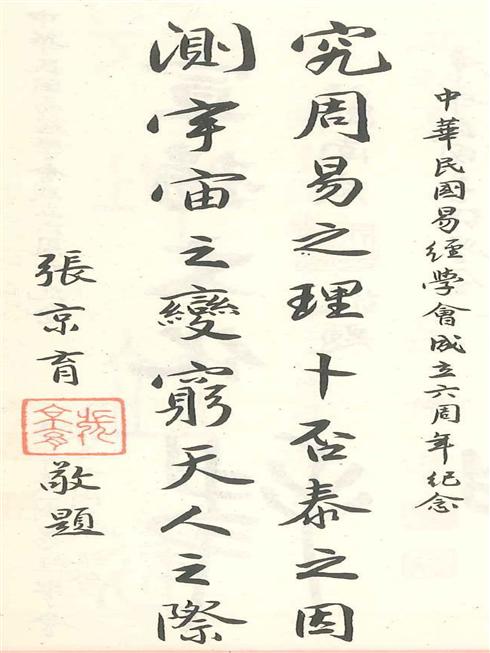 中華民國易經學會成立六周年紀念
究周易之理卜否泰之因
測宇宙之變窮天人之際
張京育
敬題